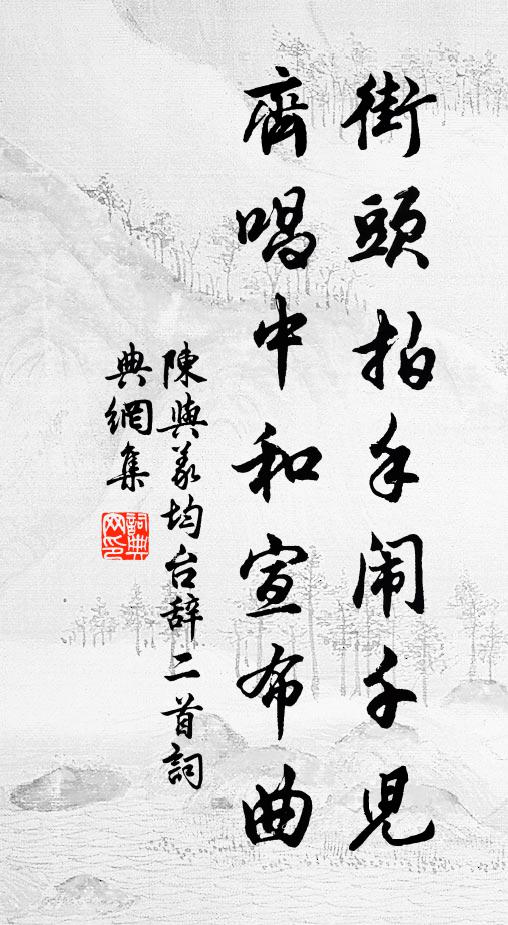 街頭拍手鬧千兒
齊唱中和宣布曲
陳與義均台辞二首詞
典網集
詞典網印